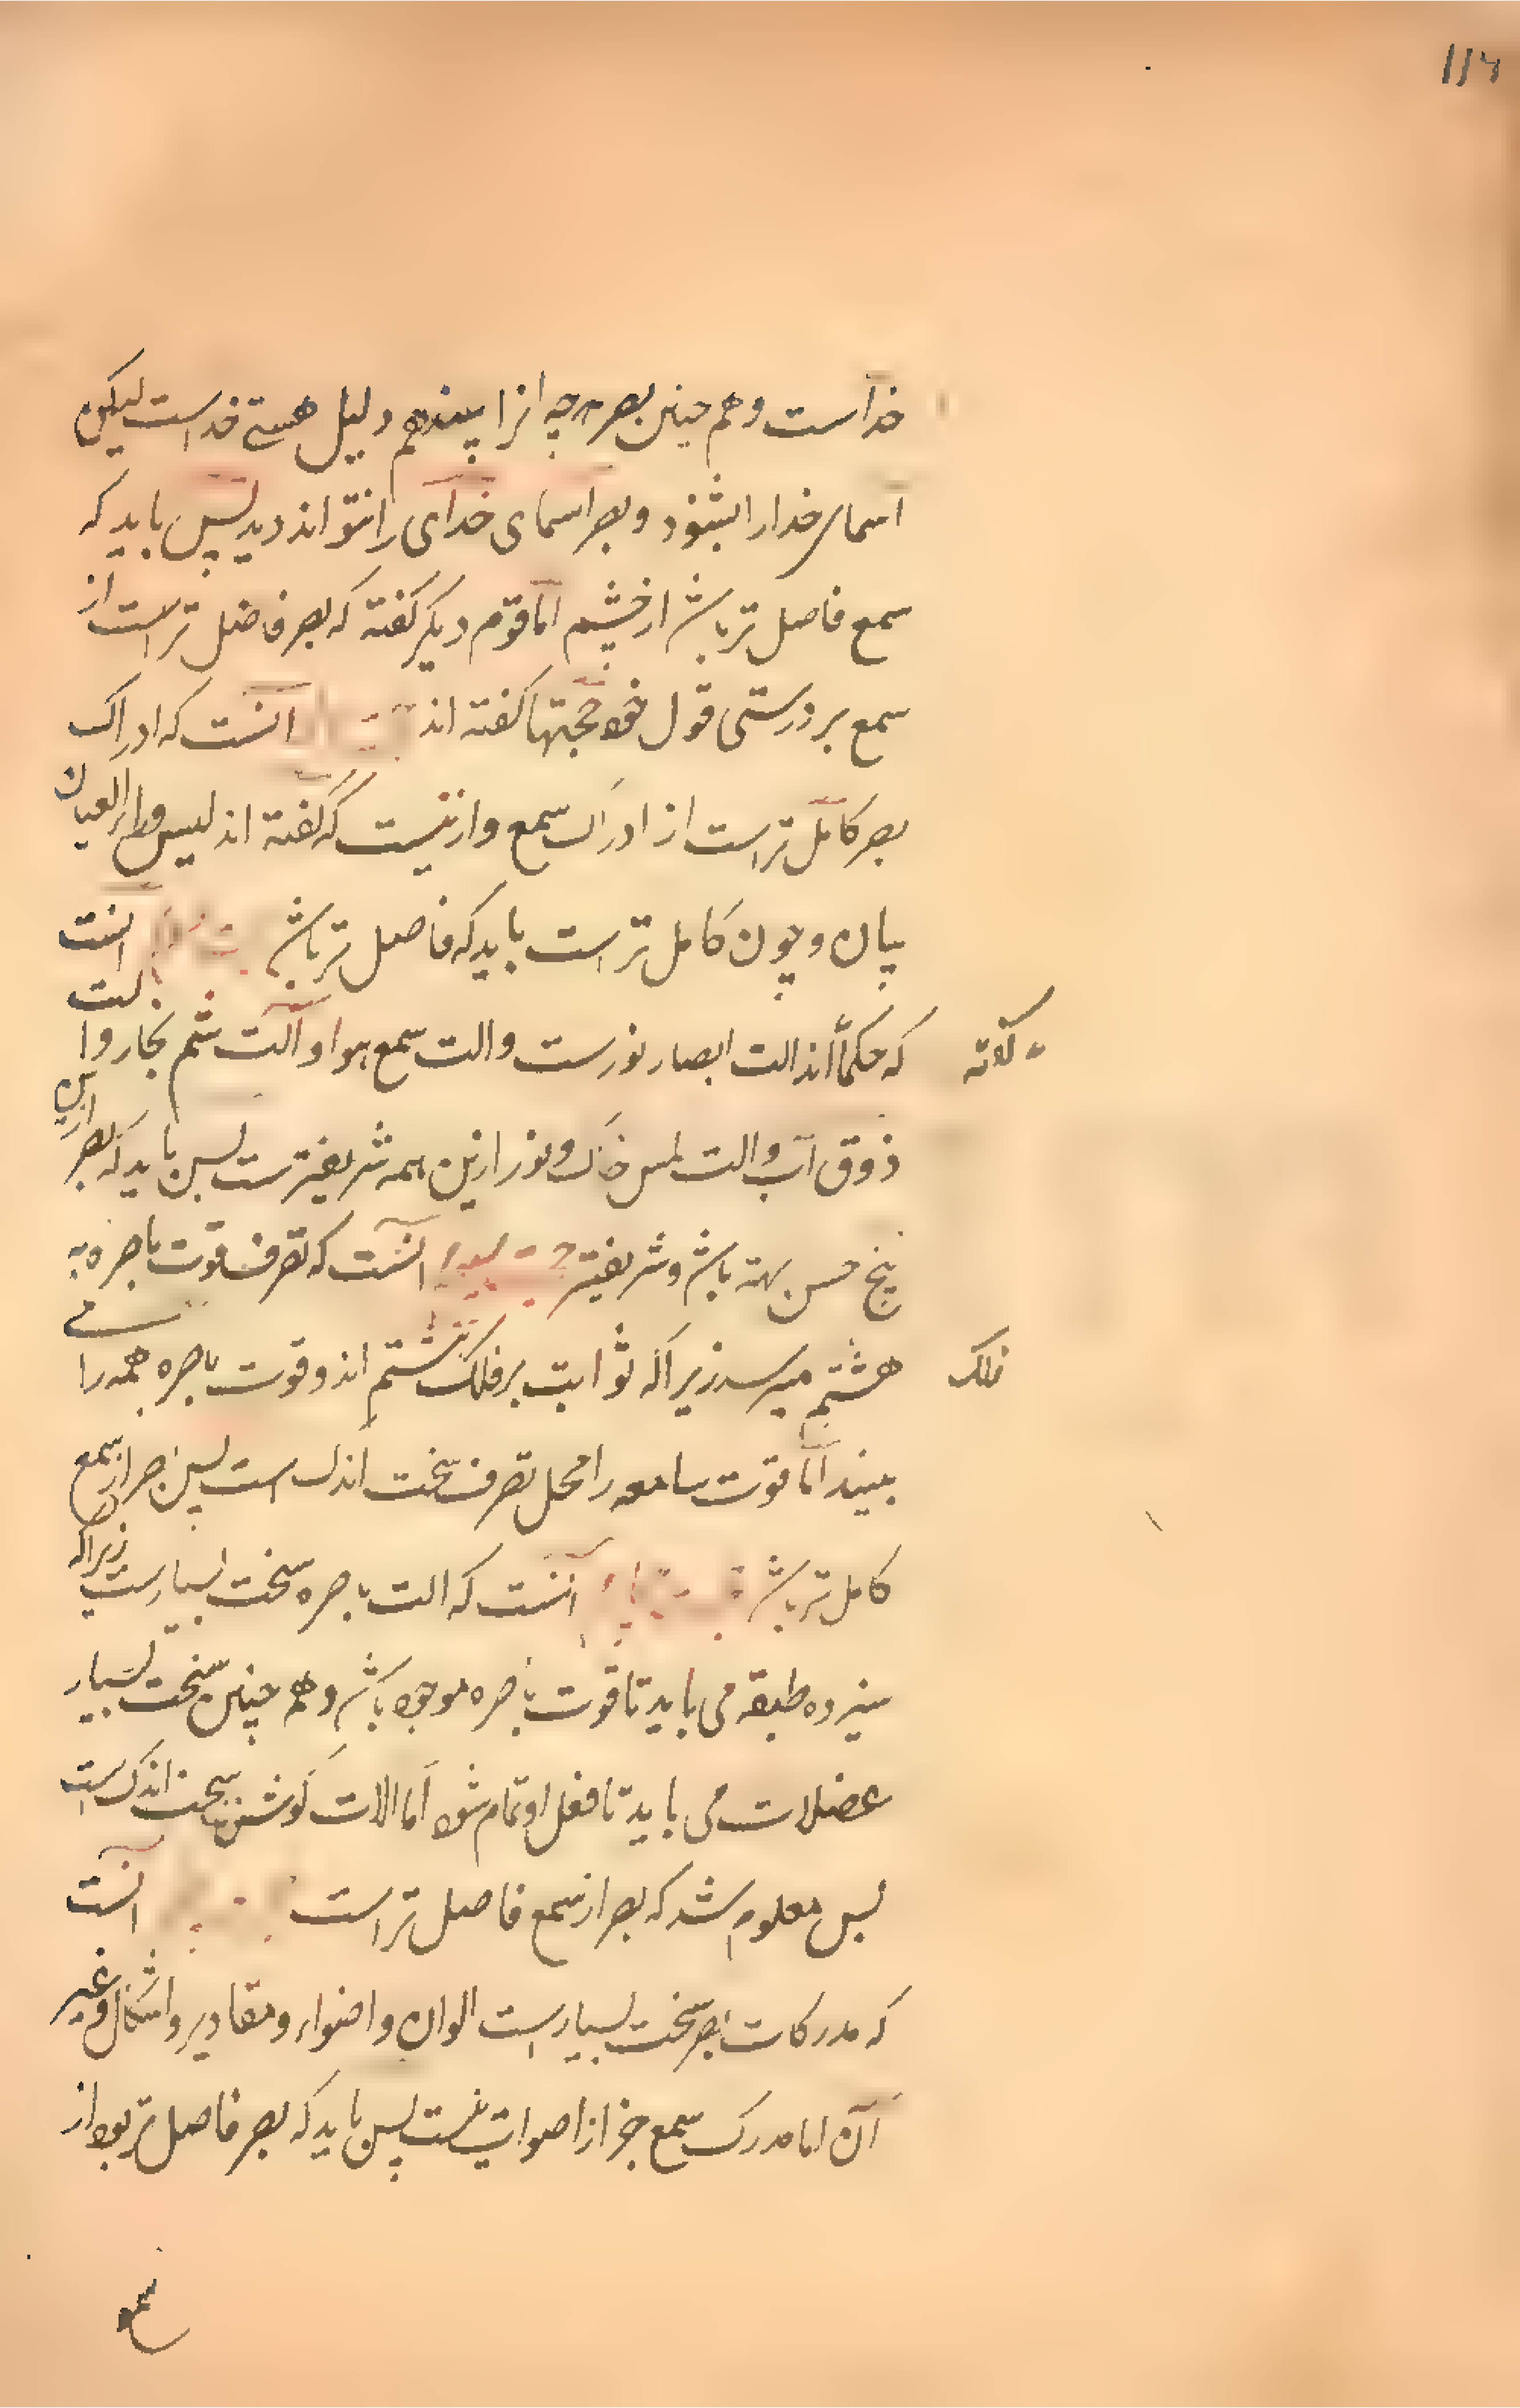 ۱۱۶
خدآست و هم چنین بصر هرچه انرا بیند هم دلیل هستی خداست لیکن
اسمای خدا را بشنود و بصر اسمای خدآی را نتواند دید پس باید که
سمع فاضل تر باشد از چشم امّا قوم دیگر گفته که بصر فاضل تر است از
سمع بر درستی قول خود حجّتها گفته اند آنست که ادراک
بصر کامل تر است از ادراک سمع و ازینست که گفته اند لیس وراء العیان
بیان و چون کامل تر است باید که فاضل تر باشد آنست
که حکما اند الت ابصار نورست و الت سمع هوا و آلت شم بخار و الت
گفته
ذوق آب و الت لمس خاک و نور ازین همه شریفترست پس باید که بصر ازین
پنج حس بهتر باشد و شریفتر حجت سیوم آنست که تصرف قوت باصره به
فلک
هشتم میرسد زیرا که ثوابت بر فلک هشتم اند و قوت باصره همه را می
بیند امّا قوت سامعه را محل تصرف سخت اندک است پس بصر از سمع
کامل تر باشد آنست که الت باصره سخت بسیارست زیرا که
سیزده طبقه می باید تا قوت باصره موجود باشد و هم چنین سخت بسیار
عضلات می باید تا فعل او تمام شود اما الات گوش سخت اندک است
پس معلوم شد که بصر از سمع فاضل تر است آنست
که مدرکات بصر سخت بسیار است الوان و اضواء و مقادیر و اشکال و غیر
آن اما مدرک سمع جز از اصوات نیست پس باید که بصر فاضل تر بود از
سمع